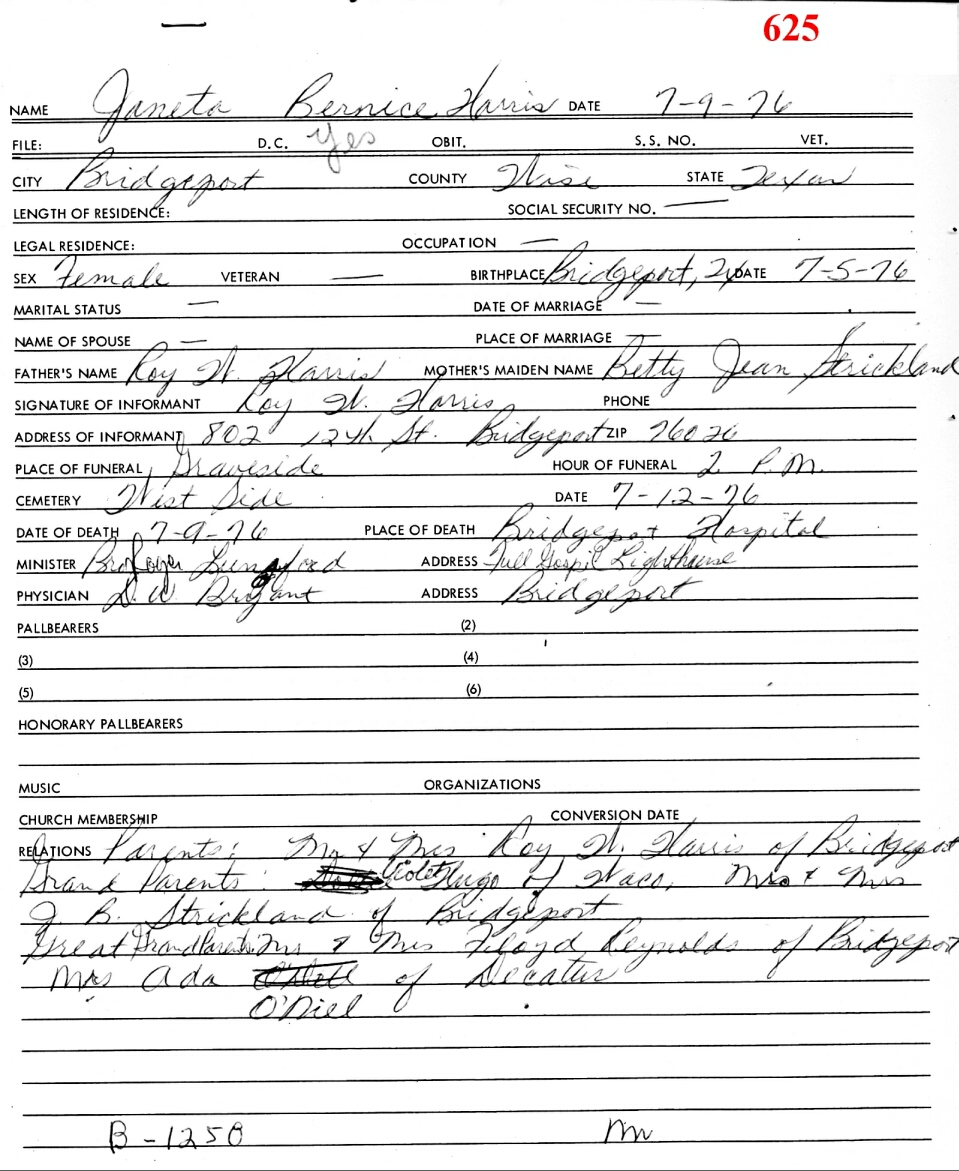 625
NAME Janeta Bernice Harris DATE 7-9-76
FILE: D.C. Yes OBIT. S.S. NO. VET.
CITY Bridgeport COUNTY Wise STATE Texas
LENGTH OF RESIDENCE: SOCIAL SECURITY NO. —
LEGAL RESIDENCE: OCCUPATION —
SEX Female VETERAN — BIRTHPLACE Bridgeport, Tx DATE 7-5-76
MARITAL STATUS — DATE OF MARRIAGE —
NAME OF SPOUSE — PLACE OF MARRIAGE —
FATHER'S NAME Roy W. Harris MOTHER'S MAIDEN NAME Betty Jean Strickland
SIGNATURE OF INFORMANT Roy W. Harris PHONE
ADDRESS OF INFORMANT 802 12th St. Bridgeport ZIP 76026
PLACE OF FUNERAL Graveside HOUR OF FUNERAL 2 P.M.
CEMETERY West Side DATE 7-12-76
DATE OF DEATH 7-9-76 PLACE OF DEATH Bridgeport Hospital
MINISTER Bro Lunsford ADDRESS Full Gospel Lighthouse
PHYSICIAN D.W. Bryant ADDRESS Bridgeport
PALLBEARERS (2)
(3) (4)
(5) (6)
HONORARY PALLBEARERS
MUSIC ORGANIZATIONS
CHURCH MEMBERSHIP CONVERSION DATE
RELATIONS Parents: Mr & Mrs Roy W. Harris of Bridgeport
Grand Parents: Violet Hugo of Waco, Mr & Mrs
J B. Strickland of Bridgeport
Great Grand Parents Mr & Mrs Floyd Reynolds of Bridgeport
Mrs Ada of Decatur
O'Niel
B-1250 m